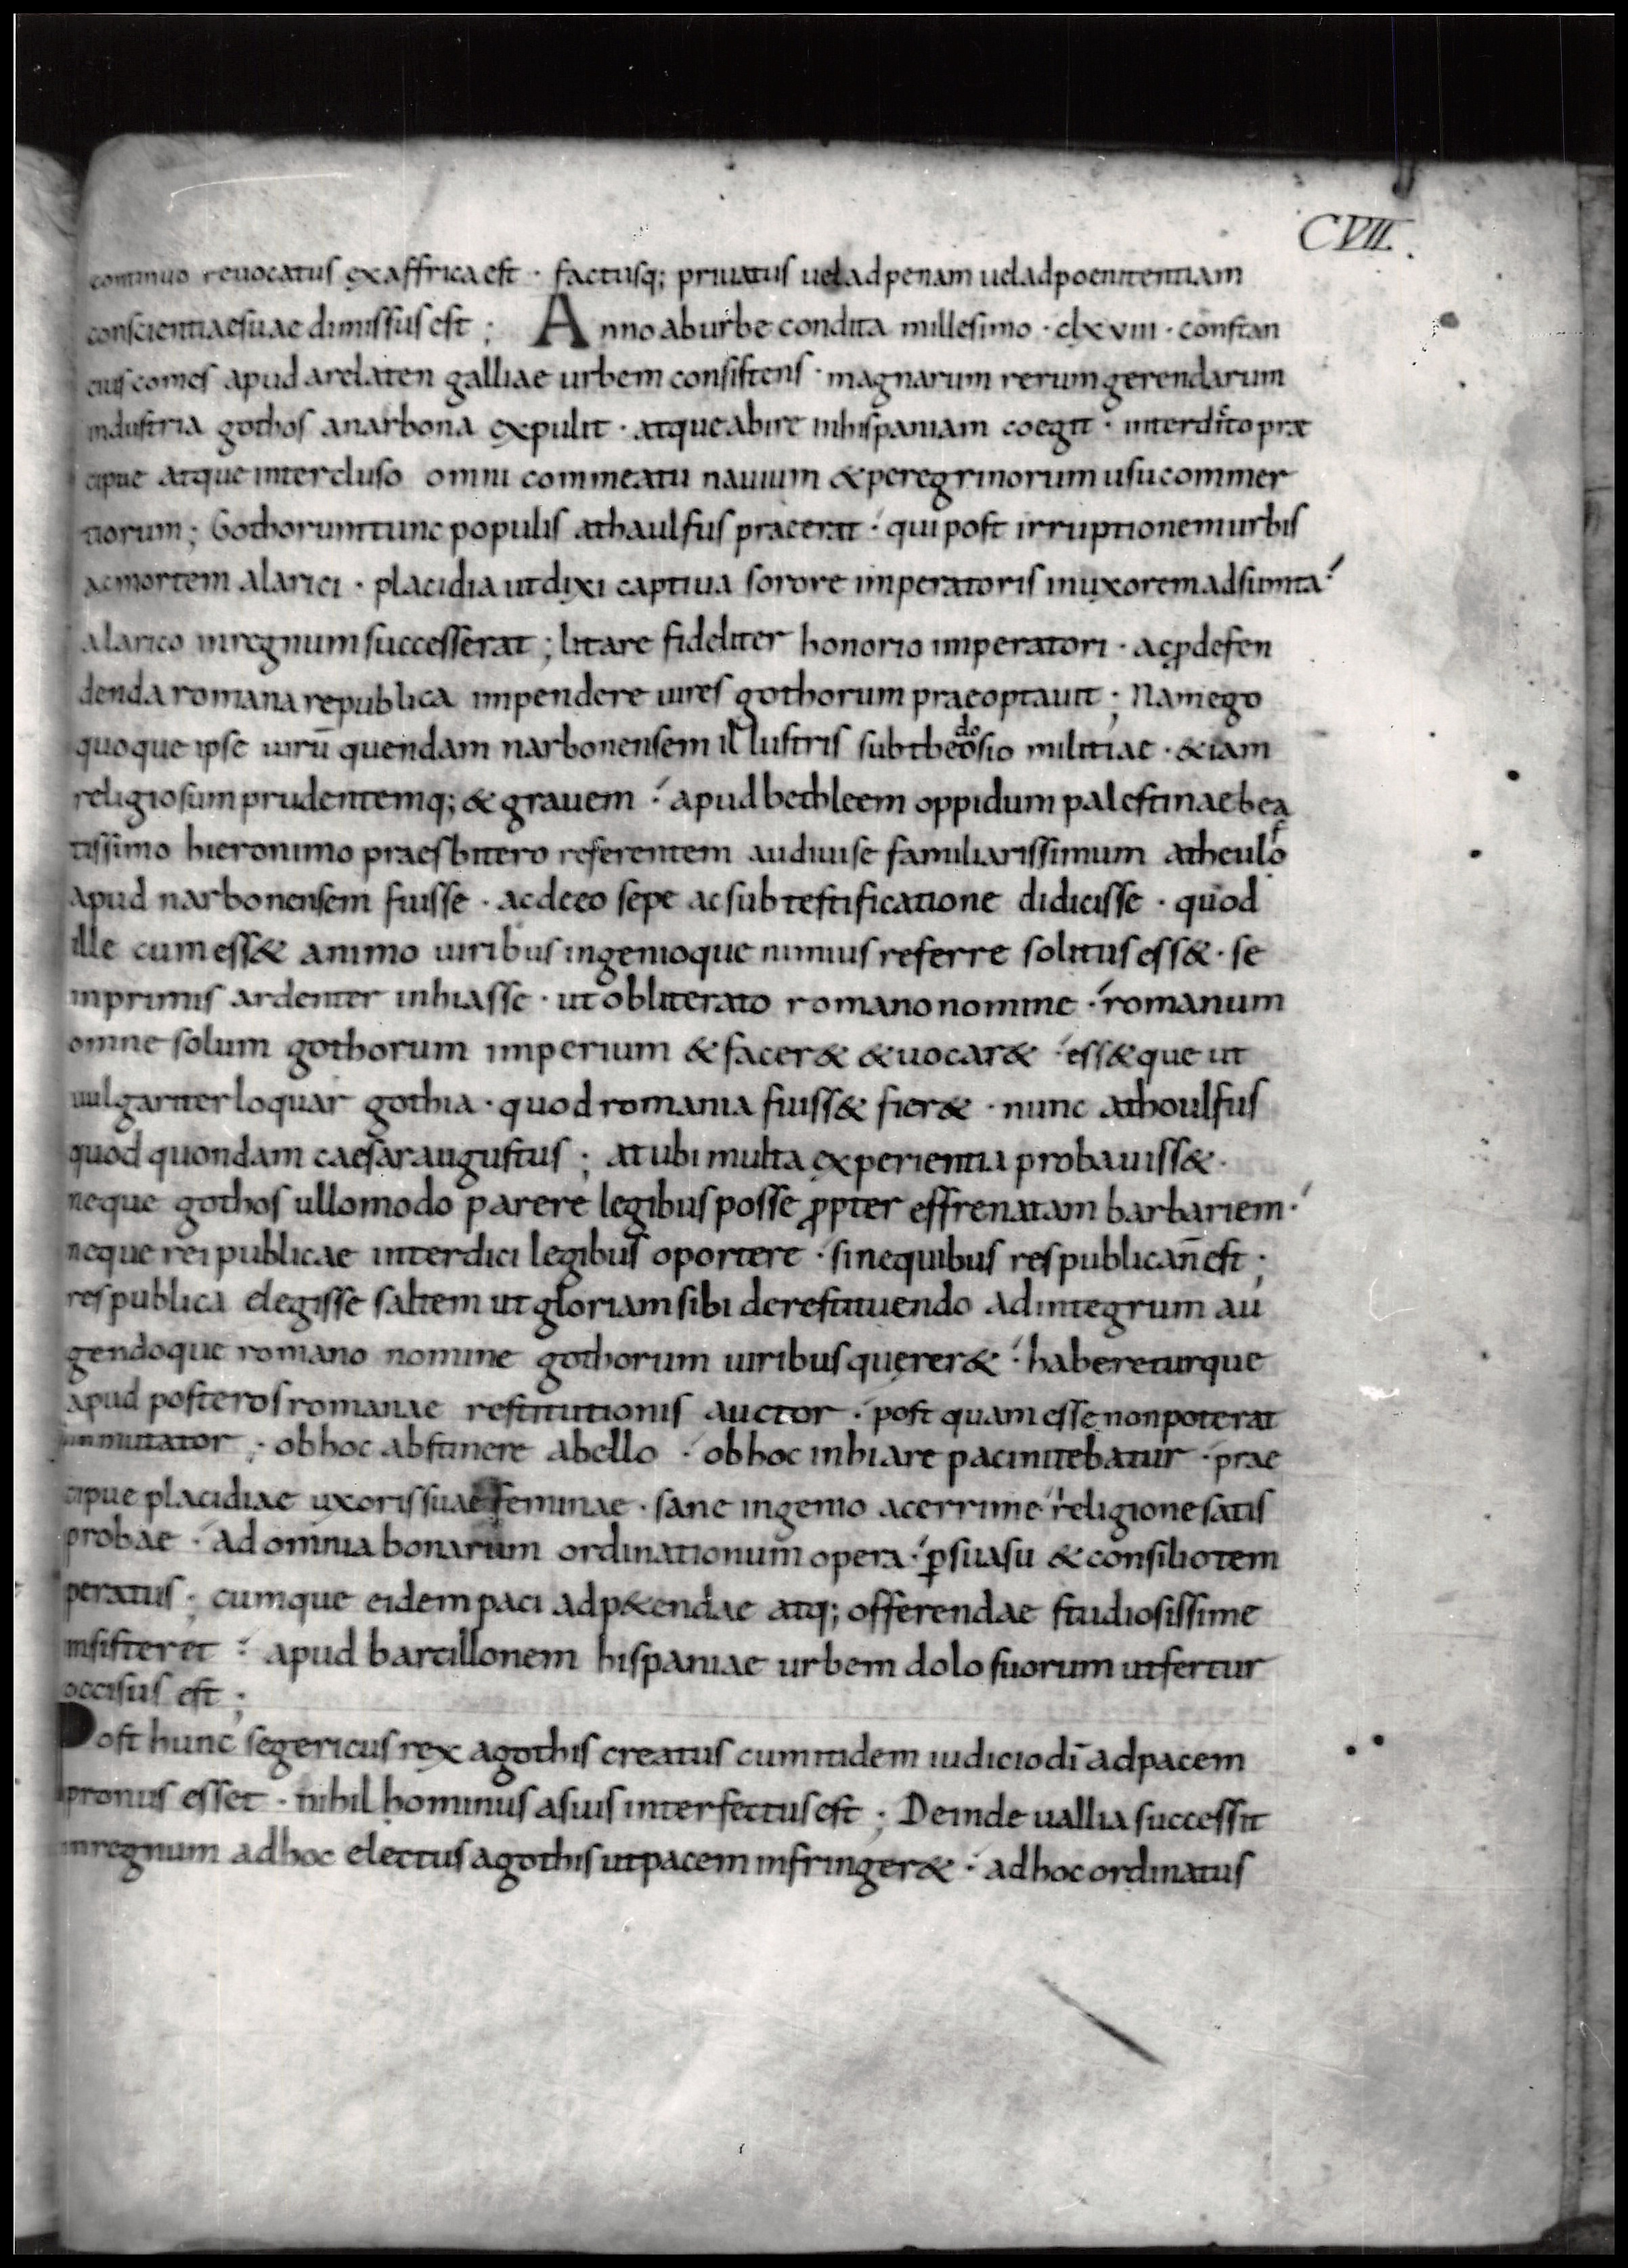 CVII.
continuo reuocatus exaffrica est · factusq; priuatus uel adpenam uel adpoenitentiam
conscientiaesuae dimissus est ; Anno aburbe condita millesimo · clxviii · constan
tius comes apud arelaten galliae urbem consistens · magnarum rerum gerendarum
industria gothos anarbona expulit · atque abire inhispaniam coegit · interdicto prae
cipue atque intercluso omni commeatu nauium & peregrinorum usu commer
tiorum ; Gothorum tunc populis athaulfus praeerat · qui post irruptionem urbis
acmortem alarici · placidia utdixi captiua sorore imperatoris inuxorem adsumta
alarico inregnum successerat ; litare fideliter honorio imperatori · acp̱ defen
denda romana republica impendere uires gothorum praeoptauit ; Nam ego
quoque ipse uirū quendam narbonensem illustris subtheodosio militiae · & iam
religiosum prudentemq; & grauem · apud bethleem oppidum palestinae bea
tissimo hieronimo praesbitero referentem audiuise familiarissimum atheulfo
apud narbonensem fuisse · acdeeo sepe acsub testificatione didicisse · quod
ille cum ess& animo uiribus ingenioque nimius referre solitus ess& · se
inprimis ardenter inhiasse · ut obliterato romano nomine · romanum
omne solum gothorum imperium & facer& & uocar& · ess&que ut
uulgariter loquar gothia · quod romania fuiss& fier& · nunc athoulfus
quod quondam caesar augustus ; at ubi multa experientia probauiss& ·
neque gothos ullomodo parere legibus posse p̱pter effrenatam barbariem ·
neque rei publicae interdici legibus oportere · sine quibus res publica n̄ est ;
res publica elegisse saltem ut gloriam sibi derestituendo ad integrum au
gendoque romano nomine gothorum uiribus querer& · habereturque
apud posteros romanae restitutionis auctor · post quam esse non poterat
inmutator ; ob hoc abstinere abello · ob hoc inhiare paci nitebatur · prae
cipue placidiae uxoris suae feminae · sane ingenio acerrime religione satis
probae · ad omnia bonarum ordinationum opera · p̱suasu & consilio tem
peratus ; cumque eidem paci adp&endae atq; offerendae studiosissime
insisteret · apud barcillonem hispaniae urbem dolo suorum utfertur
occisus est ;
Post hunc segericus rex agothis creatus cum itidem iudicio dī adpacem
pronus esset · nihil hominus asuis interfectus est ; Deinde uallia successit
inregnum adhoc electus agothis utpacem infringer& · adhoc ordinatus